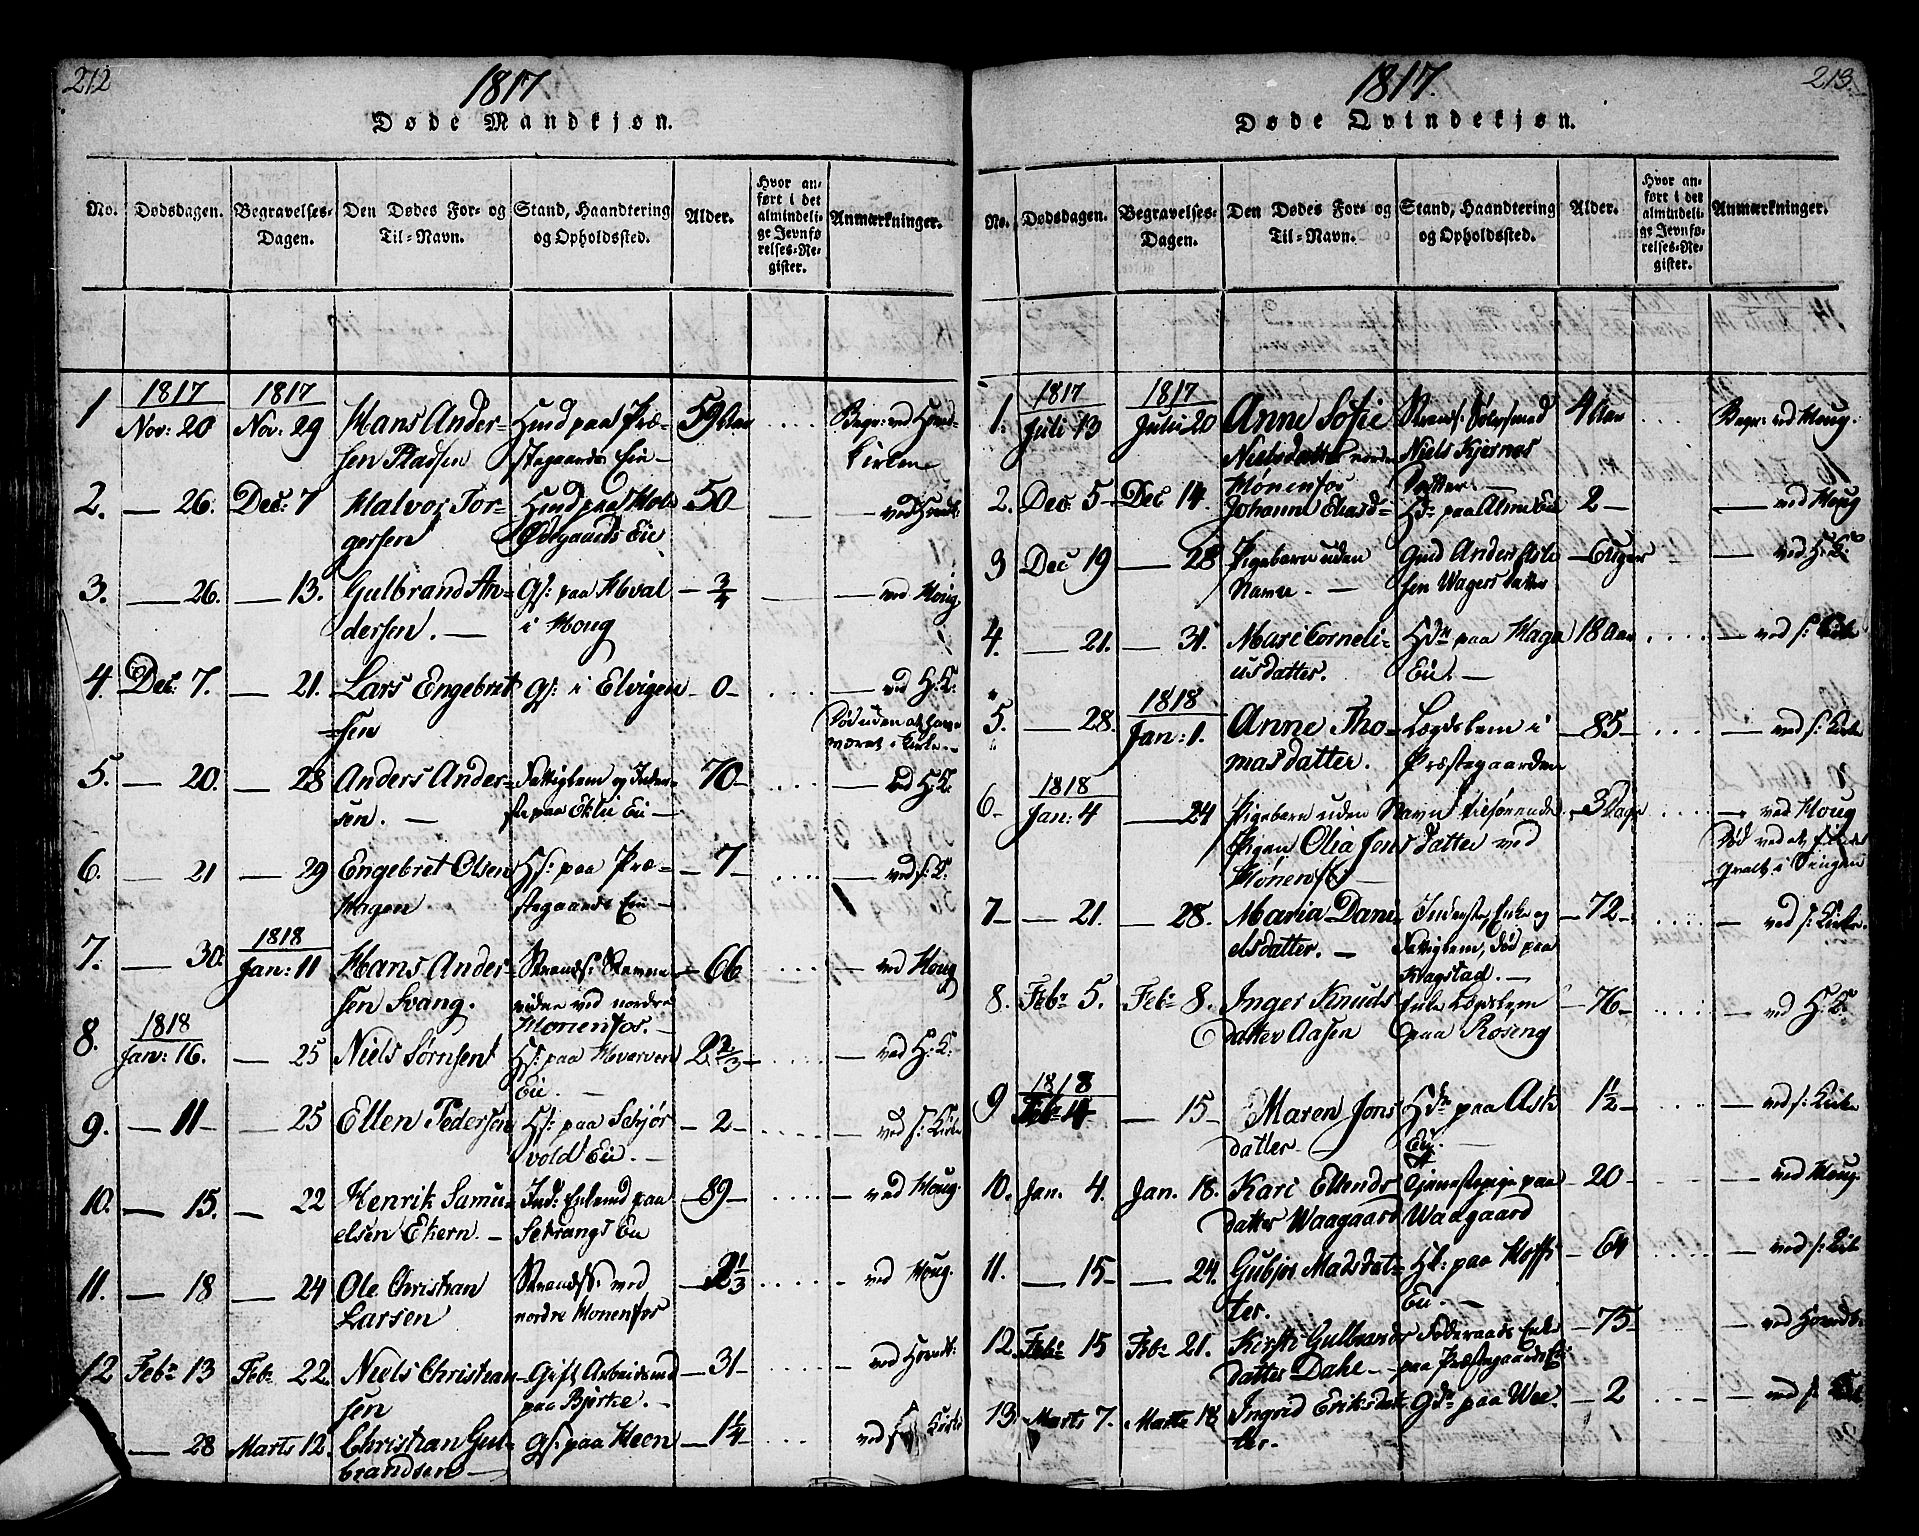 212
1817
Døde Mandkjøn.
No. Dødsdagen. Begravelses- Dagen. Den Dødes For- og Til-Navn. Stand, Haandtering og Opholdssted. Alder. Hvor anført i det almindelige Jevnførelses-Register. Anmærkninger.
1 1817 Nov: 20 1817 Nov: 29 Hans Andersen Pladsen Husmd paa Præstegaards Eie 59 Aar Begr: ved Hønd- Kirkene
2. — 26. Dec: 7 Halvor Torgersen Eie 50 — ved
3. — 26. — 13. Gulbrand Andersen. — Gs: paa Hval i Houg — 3/4 — ved Houg
4. Dec: 7. — 21. Lars Engebretsen Gs: i Elvigen — 0 — — ved H: K: Død uden at have været i Kirke. —
5. — 20. — 28 Anders Andersen. — Fattiglem og Inderste paa Eklie Eie — 70 — — ved H: K:
6. — 21 — 29 Engebret Olsen Hagen Hs: paa Præstegaards Eie — — 7 — — ved s: K:
7. — 30. 1818 Jan: 11 Hans Andersen Svang. Strands: ved nordre Hønenfos. — — 66 — ved Houg
8. 1818 Jan: 16. — 25 Niels Sørnsen Hs: paa Hverven Eie. — 2 2/3 — — ved H: K:
9. — 11 — — 25 Ellen Pedersøn Hs: paa Schjørvold Eie. — — 2 — — ved s: Kirke
10. — 15. — 22 Henrik Samuelsen Ekern. — Ind: Enkemd paa Setrangs Eie — 89 — — ved Houg.
11. — 18 — 24 Ole Christian Larsen Strands: ved nordre Hønenfos — 2 1/3 — ved Houg.
12 Feb: 13 Feb: 22. Niels Christiansen Gift Arbeidsmd paa Bjerke. — — 31 — — ved
— 28 Marts 12. Christian Gulbrandsen — Gs: paa Heen — 1 1/4 — ved s: Kirke
213.
1817.
Døde Qvindekjøn.
No. Dødsdagen. Begravelses- Dagen. Den Dødes For- og Til-Navn. Stand, Haandtering og Opholdssted. Alder. Hvor anført i det almindelige Jevnførelses-Register. Anmærkninger.
1. 1817 Juli 13 1817 Juli 20 Anne Sofie Nielsdatter nordre Hønenfos Strands: Niels Kjernes Datter. — 4 Aar Begr: ved Houg.
2. Dec: 5 — Dec 14. Johanne Eliasd- Hdr paa Eie 2 — — ved Houg
3 Dec 19 — 28 Pigebarn uden Navn. — Gmd Anders Datter — 6 Uger — ved H: K:
4. — 21. — 31. Mari Corneliusdatter. Hdr paa Haga Eie. — 18 Aar — ved s: Kirke
5. — 28. 1818 Jan: 1. Anne Thomasdatter. Lægdslem i Præstegaarden — 85 — — ved s: Kirke
6 — 1818 Jan: 4 — 24 Pigebarn uden Navn tilhørende Pigen Olia Jensdatter ved Hønenfos — — 3 Dage — ved Houg Død ved at i Sengen
7 — — 21. — 28. Maria Danielsdatter. — Inderste, Enke og Fattiglem, død paa Klægstad. — — 72 — — ved s: Kirke.
8. Feb: 5. Feb: 8. Inger Knudsdatter Aasen Enke Lægdslem paa Roseng — 76 — — ved H: K:
9 1818 Feb: 14 — 15 — Maren Jonsdatter — Hdr paa Ask Eie. — 1 1/2 — — ved s: Kirke
10. Jan. 4. Jan. 18. Kari Ellendsdatter Waagaard Tjenestepige paa Waagaard — 20 — — ved Houg.
11. — 15 — — 24. Gubjør Madsdatter. Hk: paa Hoffs Eie. — — 64 — ved s: Kirke
12. Feb: 15 Feb: 21. Kirsti Gulbrandsdatter Dahl — Føderaads Enke paa Præstegaards Eie — 75 — — ved
13 Marts 7. Marts 18 Ingrid Eriksdatter. Gdr paa Wee. — 2 — ved s: Kirke